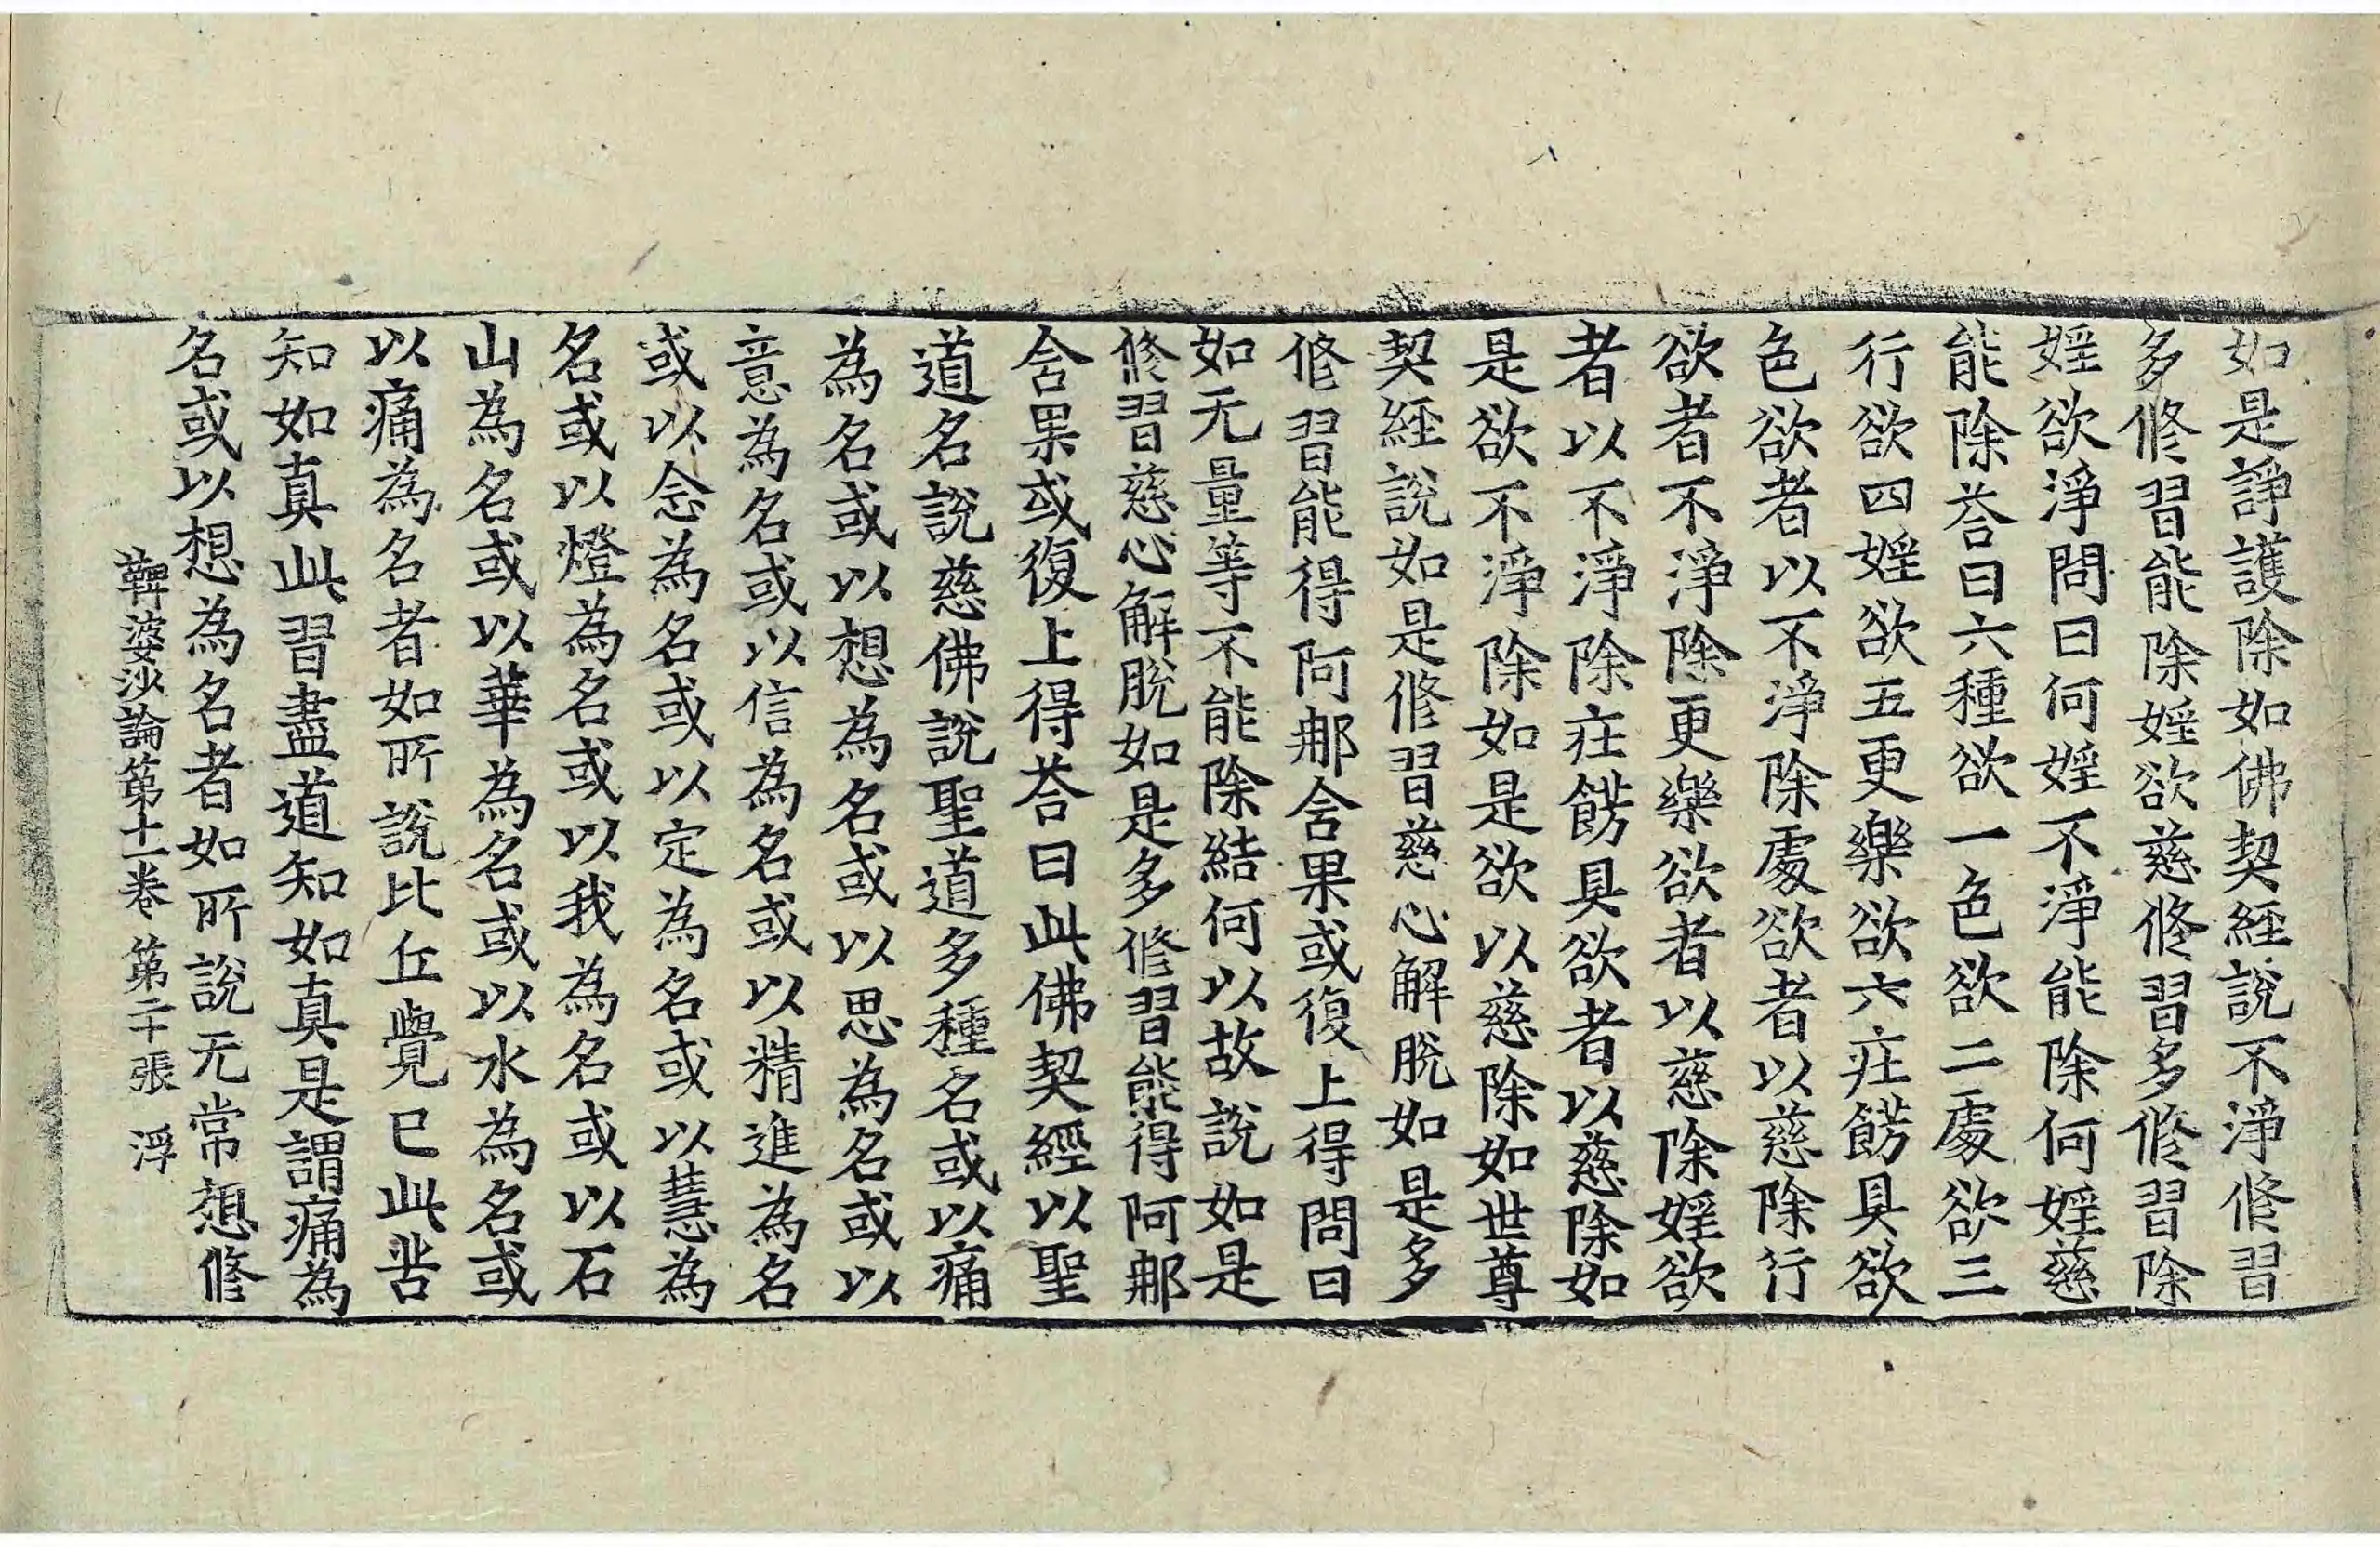 如是諍護除如佛契經說不淨修習
多修習能除婬欲慈修習多修習除
婬欲淨問曰何婬不淨能除何婬慈
能除荅曰六種欲一色欲二䖏欲三
行欲四婬欲五更樂欲六莊餝具欲
色欲者以不淨除䖏欲者以慈除行
欲者不淨除更樂欲者以慈除婬欲
者以不淨除莊餝具欲者以慈除如
是欲不淨除如是欲以慈除如世尊
契經說如是修習慈心解脫如是多
修習能得阿那舍果或復上得問曰
如无量等不能除結何以故說如是
修習慈心解脫如是多修習能得阿那
舍果或復上得荅曰此佛契經以聖
道名說慈佛說聖道多種名或以痛
為名或以想為名或以思為名或以
意為名或以信為名或以精進為名
或以念為名或以定為名或以慧為
名或以燈為名或以我為名或以石
山為名或以華為名或以水為名或
以痛為名者如所說比丘覺已此苦
知如真此習盡道知如真是謂痛為
名或以想為名者如所說无常想修
鞞婆沙論第十一卷 第二十張 浮